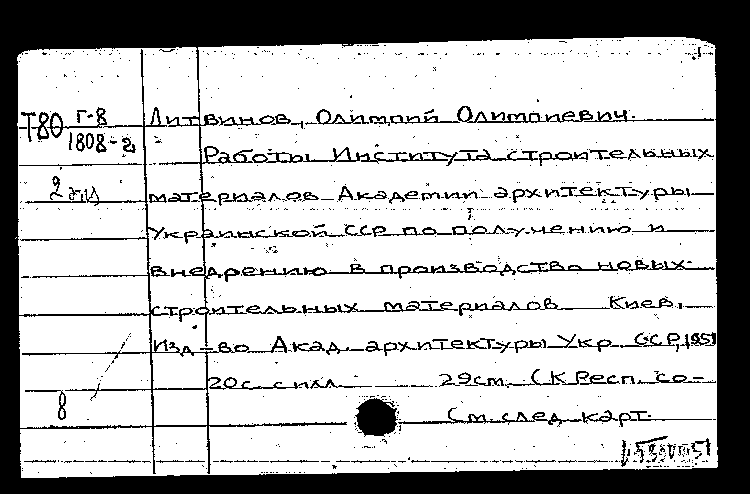 Т80 Г-8 Литвинов, Олимпий Олимпиевич.
1808-2
Работы Института строительных
2 экз материалов Академии архитектуры
Украинской ССР по получению и
внедрению в производство новых
строительных материалов Киев,
Изд-во Акад. архитектуры Укр. ССР, 1951
20с. с илл. 29см. (К Респ. со-
8 См. след. карт.